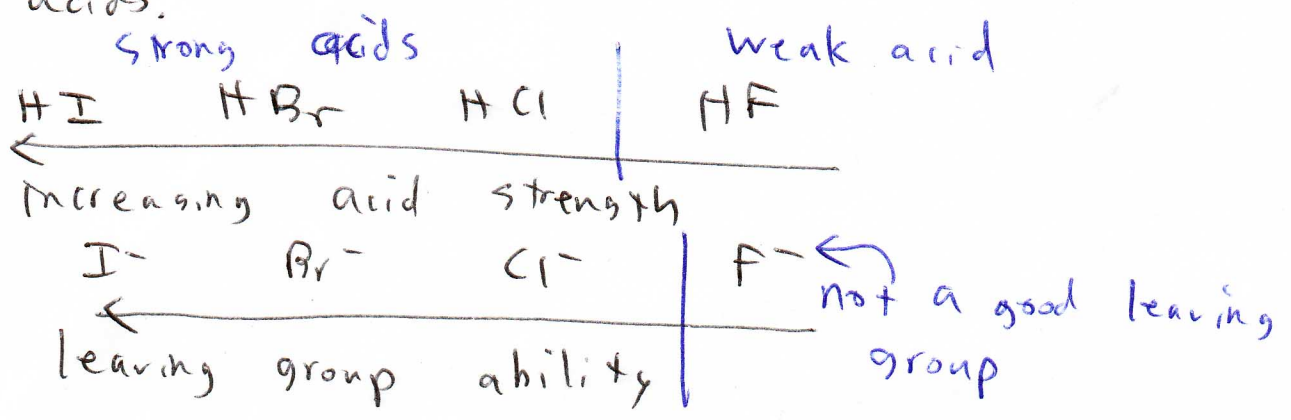 acids.
strong acids weak acid
HI HBr HCl HF
increasing acid strength
I⁻ Br⁻ Cl⁻ F⁻
not a good leaving
group
leaving group ability